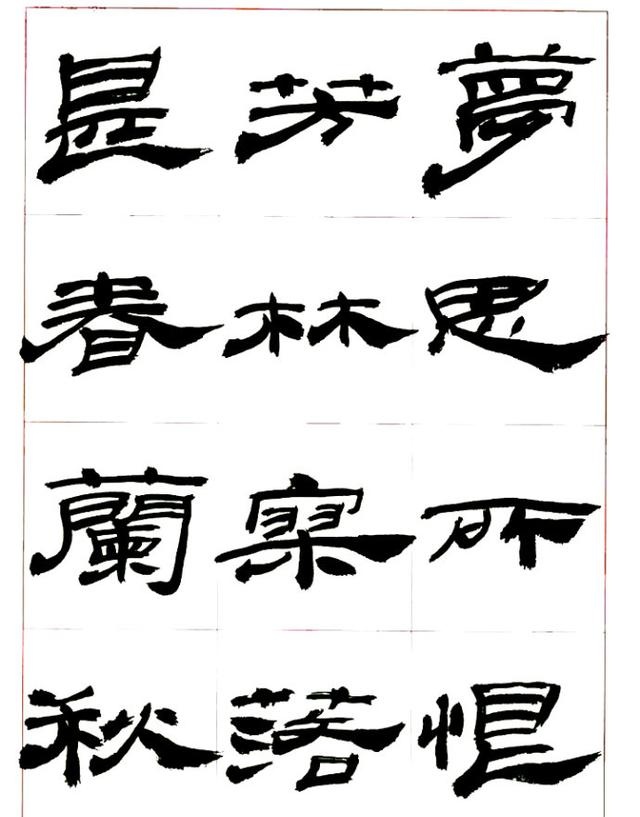 夢思所恨
芳林寥落
是春蘭秋